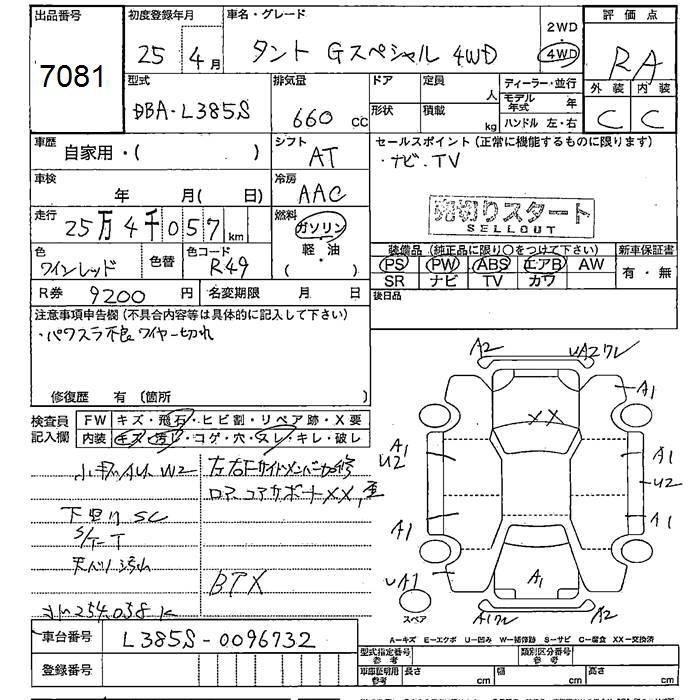 出品番号
7081
初度登録年月
25 4月
車名・グレード
タント Gスペシャル 4WD
2WD
4WD
評価点
RA
外装 内装
C C
型式
DBA-L385S
排気量
660 cc
ドア 定員 人
形状 積載 kg
ディーラー・並行
モデル年式 年
ハンドル 左・右
車歴
自家用・( )
シフト
AT
セールスポイント(正常に機能するものに限ります)
・ナビ.TV
車検
年 月( 日)
冷房
AAC
売切りスタート
SELLOUT
走行
25万4千057km
燃料
ガソリン
軽・油
・( )
色
ワインレッド
色替
色コード
R49
装備品(純正品に限り○をつけて下さい)
PS PW ABS エアB AW
SR ナビ TV カワ
新車保証書
有・無
R券 9200円
名変期限 月 日
後日品
注意事項申告欄(不具合内容等は具体的に記入して下さい)
・パワスラ不良 ワイヤー切れ
修復歴 有(箇所 )
検査員記入欄
FW キズ・飛石・ヒビ割・リペア跡・X要
内装 キズ・汚レ・コゲ・穴・スレ・キレ・破レ
W2
下回り SC
S/T-T
左右Fサイドメンバー
コアサポートXX
BTX
254,038K
A2
UA2ワレ
A1
XX
A1
U2
A1
U2
A1
A1
UA1
A1
A1ワレ
A2
スペア
A-キズ E-エクボ U-凹み W-補修跡 S-サビ C-腐食 XX-交換済
車台番号
L385S-0096732
登録番号
型式指定番号 参考
類別区分番号 参考
車庫証明用 参考
長さ cm 幅 cm 高さ cm